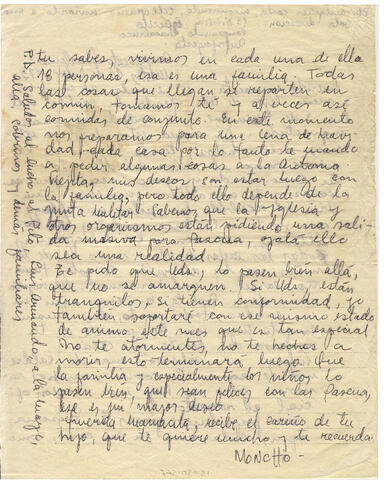 tu sabes, vivimos en cada una de ella
18 personas, esa es una familia. Todas
las cosas que llegan se reparten en
común, tomamos té y a veces así
comidas de conjunto. En este momento
nos preparamos para una cena de Navi-
dad cada casa por lo tanto te mando
a pedir algunas cosas a la
mis deseos son estar luego con
la familia, pero todo ello depende de la
junta militar. Sabemos que la Iglesia y
otros organismos están pidiendo una sali-
da masiva para Pascua, ojalá ello
sea una realidad.
Te pido que Uds. lo pasen bien allá,
que no se amarguen. Si Uds. están
tranquilos, si tienen conformidad, yo
también soportaré con ese mismo estado
de ánimo este mes que es tan especial
No te atormentes, no te heches a
morir esto terminará luego. Que
la familia y especialmente los niños lo
pasen bien, que sean felices con las Pascua,
ese es mi mejor deseo
Querida mamacita, recibe el cariño de tu
hijo, que te quiere mucho y te recuerda.
MONCHO-
P.D. Saludos al Suero, al Luis Armando, a la
alla. sobrinos y demas familiares